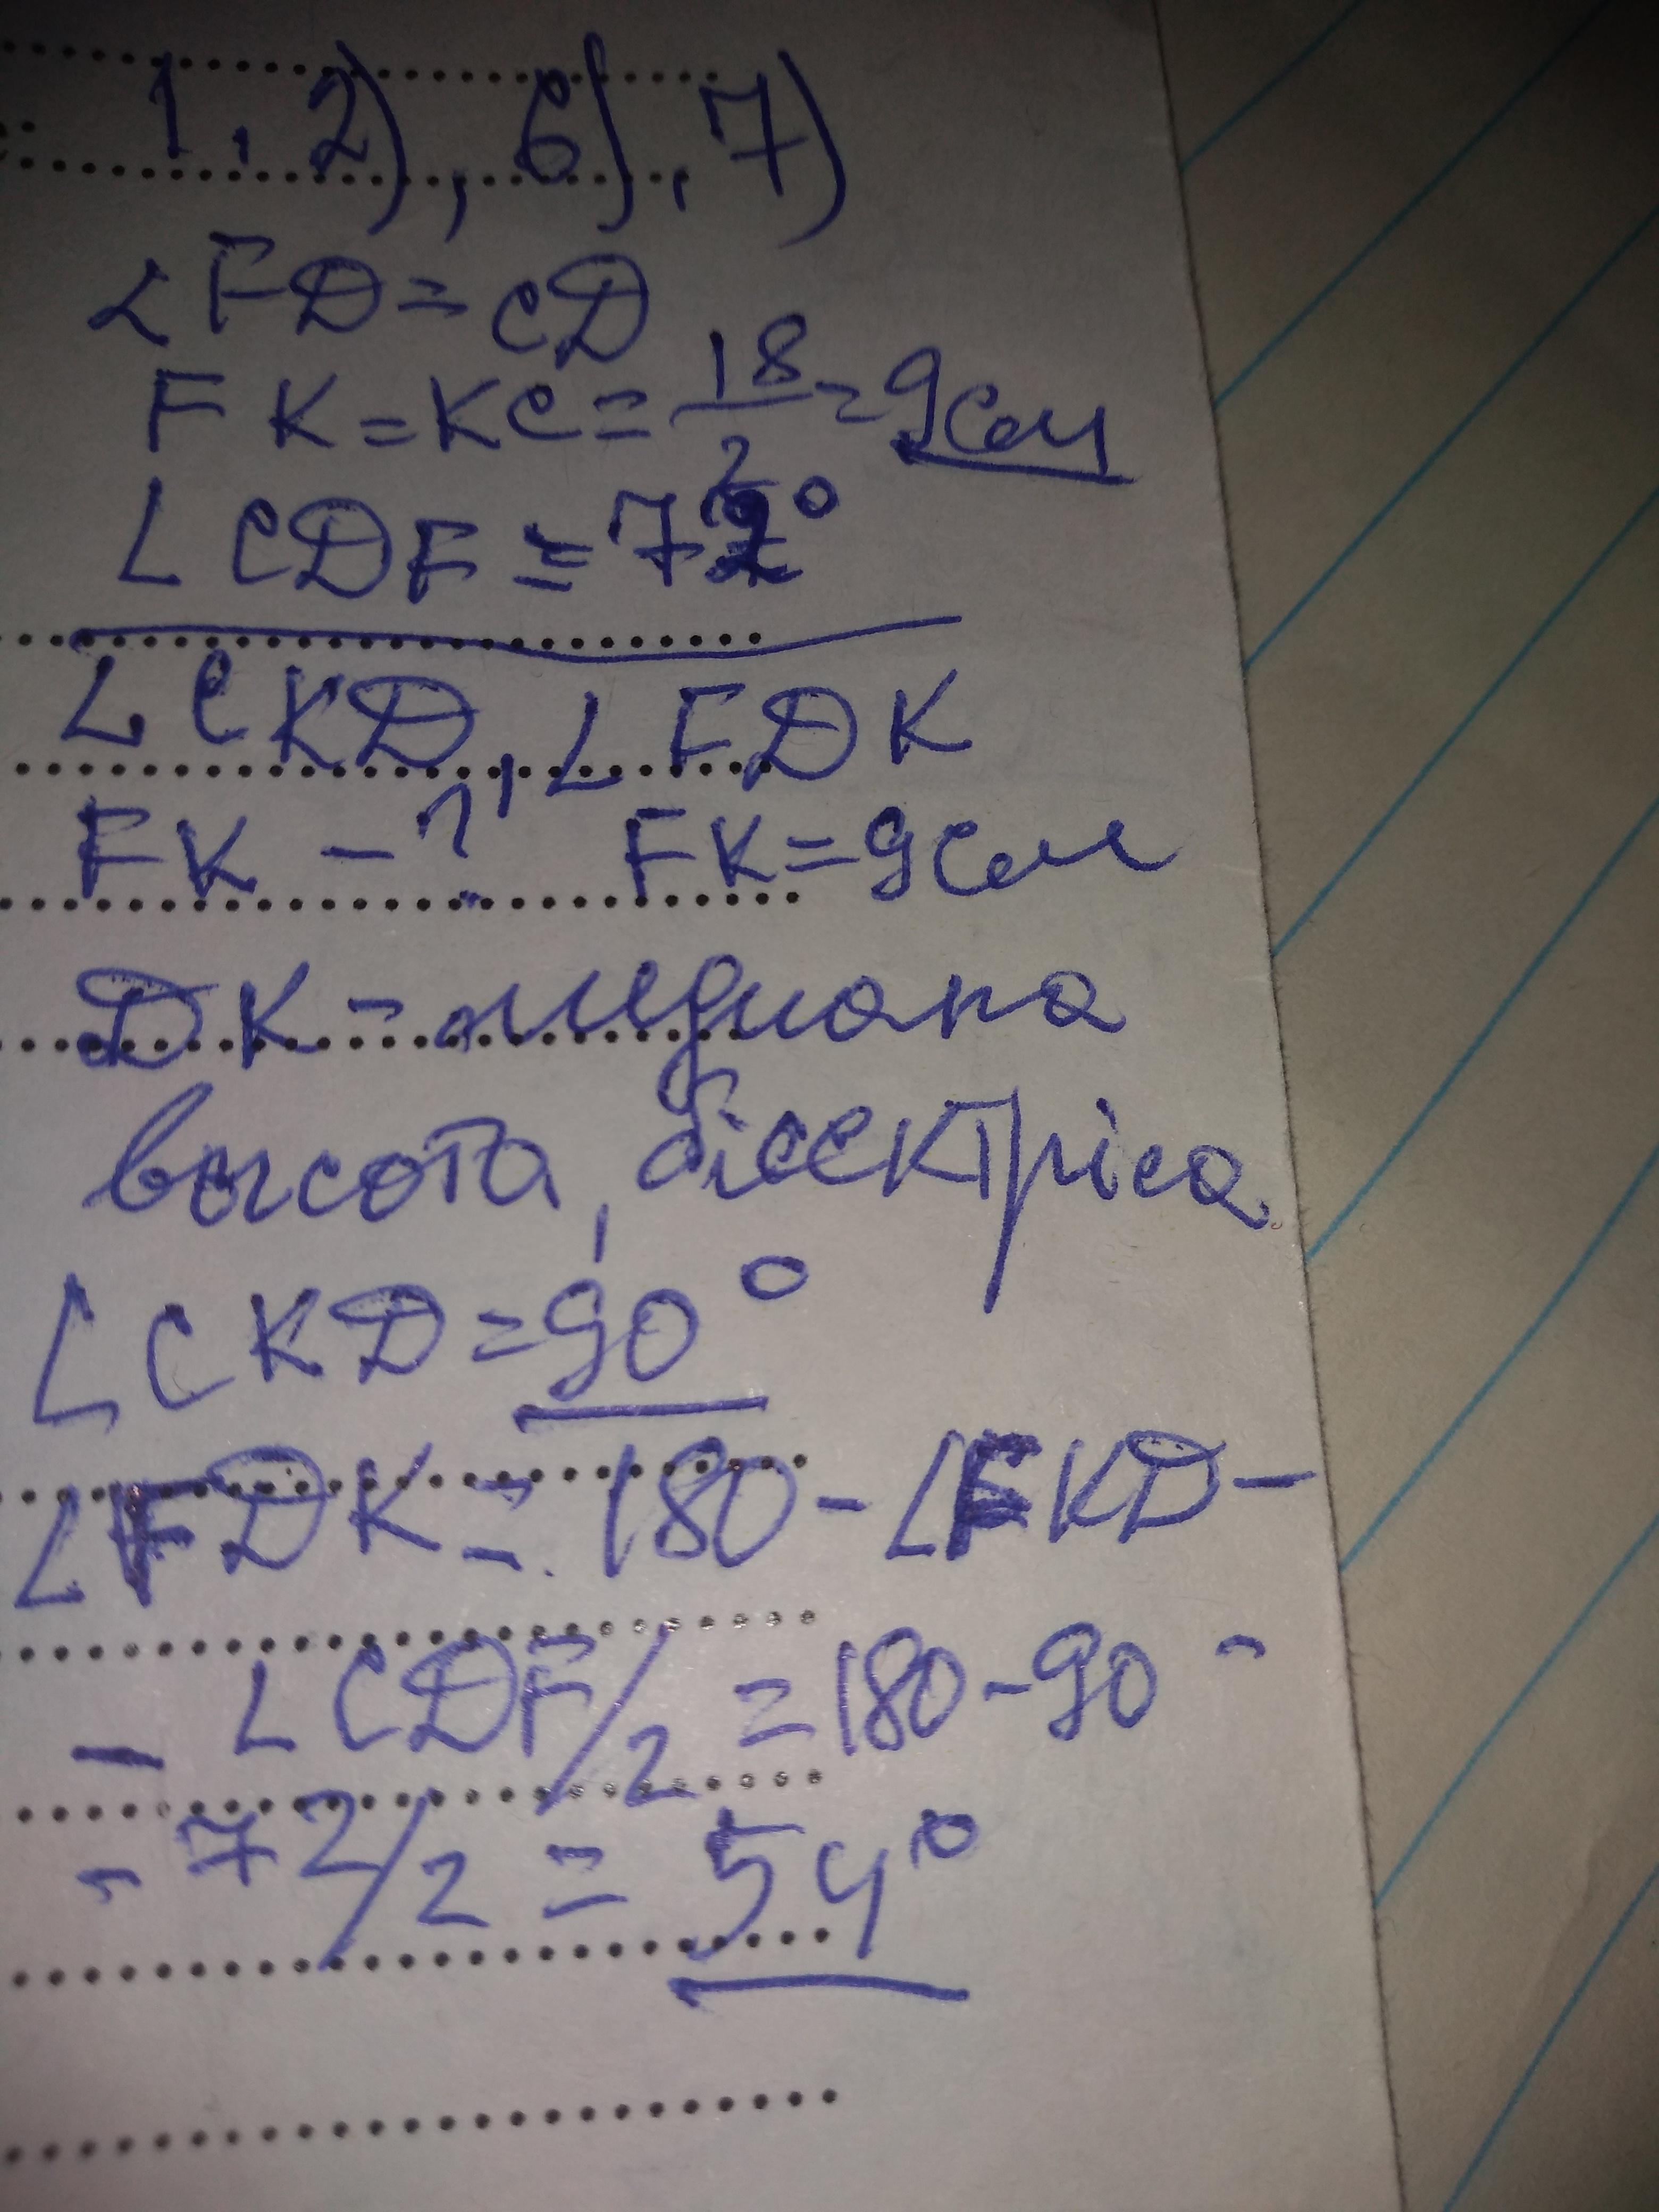 1. 2), 6), 7)
∠FD = CD
FK = KC = 18/2 = 9 см
∠CDF = 72°
∠CKD, ∠FDK
FK - ? FK = 9 см
DK - медиана
высота, бісектріса
∠CKD = 90°
∠FDK = 180 - ∠FKD -
- ∠CDF/2 = 180 - 90 -
- 72/2 = 54°